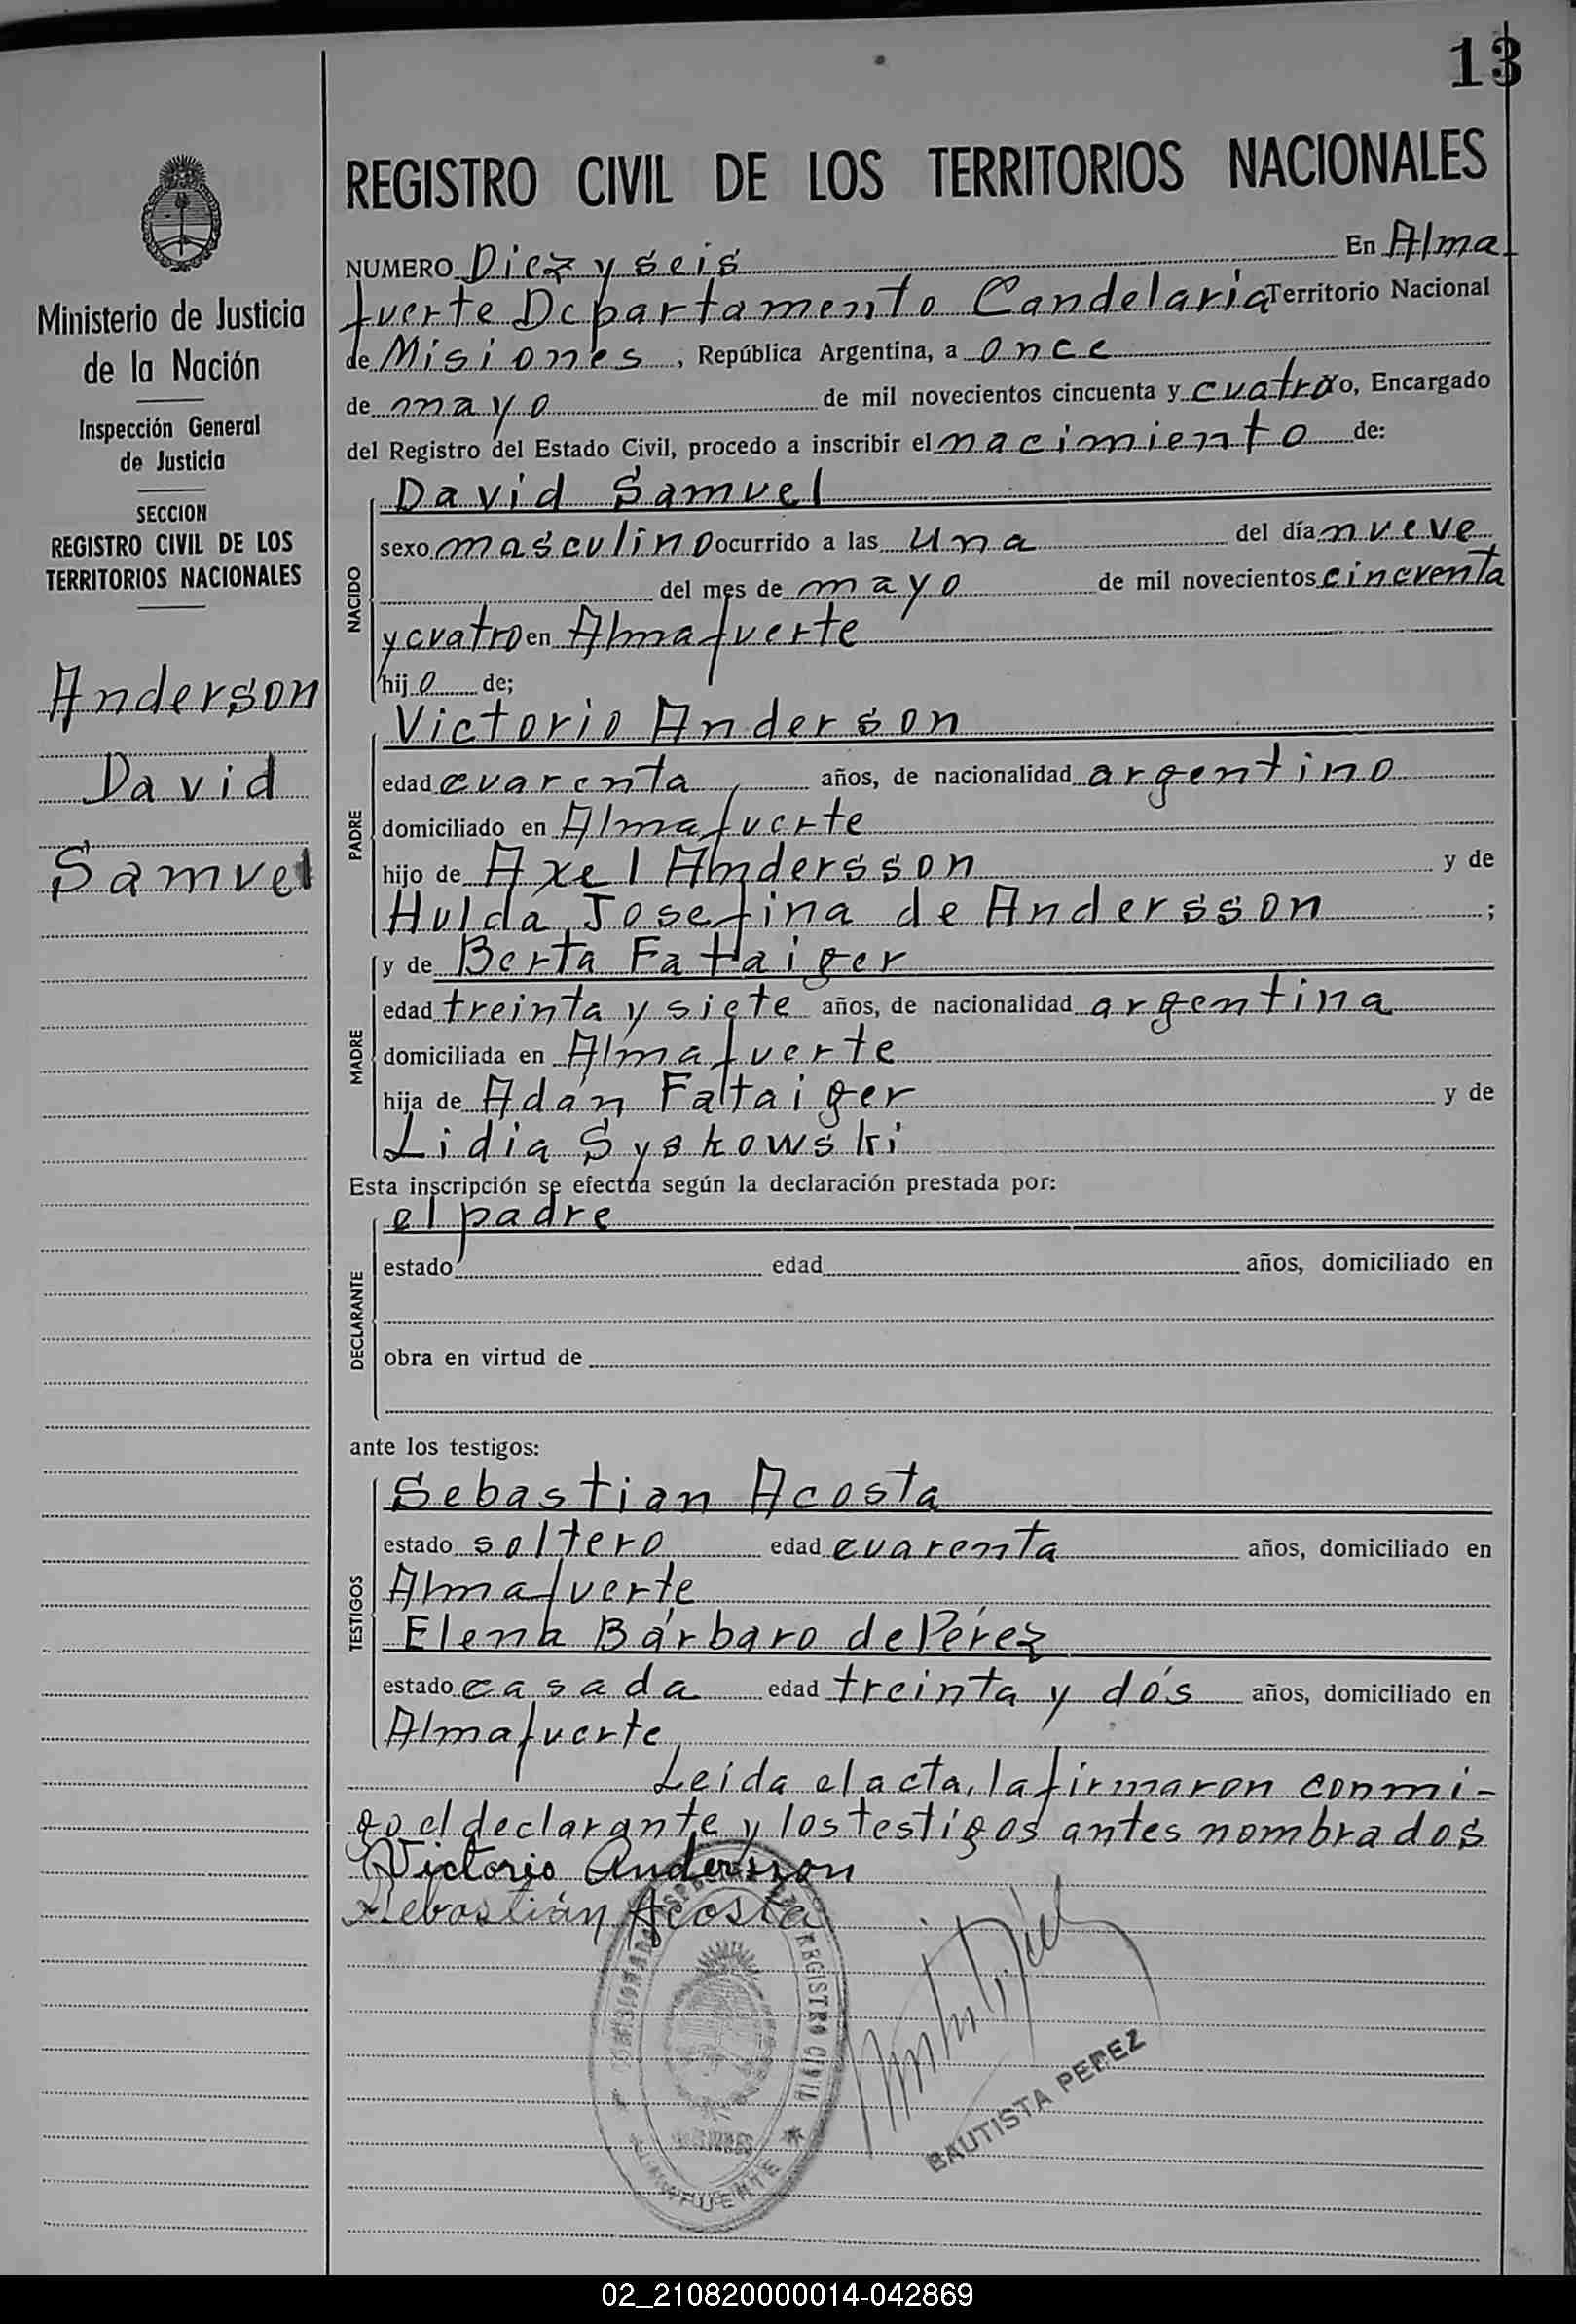 13
REGISTRO CIVIL DE LOS TERRITORIOS NACIONALES
Ministerio de Justicia
de la Nación
Inspección General
de Justicia
SECCION
REGISTRO CIVIL DE LOS
TERRITORIOS NACIONALES
Anderson
David
Samuel
NUMERO Diez y seis En Alma
fuerte Departamento Candelaria Territorio Nacional
de Misiones, República Argentina, a once
de mayo de mil novecientos cincuenta y cuatro yo, Encargado
del Registro del Estado Civil, procedo a inscribir el nacimiento de:
NACIDO
David Samuel
sexo masculino ocurrido a las una del día nueve
del mes de mayo de mil novecientos cincuenta
y cuatro en Almafuerte
hijo de;
PADRE
Victorio Anderson
edad cuarenta años, de nacionalidad argentino
domiciliado en Almafuerte
hijo de Axel Andersson y de
Hulda Josefina de Andersson ;
MADRE
y de Berta Fataiger
edad treinta y siete años, de nacionalidad argentina
domiciliada en Almafuerte
hija de Adán Faltaiger y de
Lidia Syskowski
Esta inscripción se efectúa según la declaración prestada por:
DECLARANTE
el padre
estado edad años, domiciliado en
obra en virtud de
ante los testigos:
TESTIGOS
Sebastian Acosta
estado soltero edad cuarenta años, domiciliado en
Almafuerte
Elena Bárbaro de Pérez
estado casada edad treinta y dós años, domiciliado en
Almafuerte
Leída el acta, la firmaron conmi-
go el declarante y los testigos antes nombrados
Victorio Andersson
Sebastián Acosta
REGISTRO CIVIL
ALMAFUERTE
BAUTISTA PEREZ
02_210820000014-042869